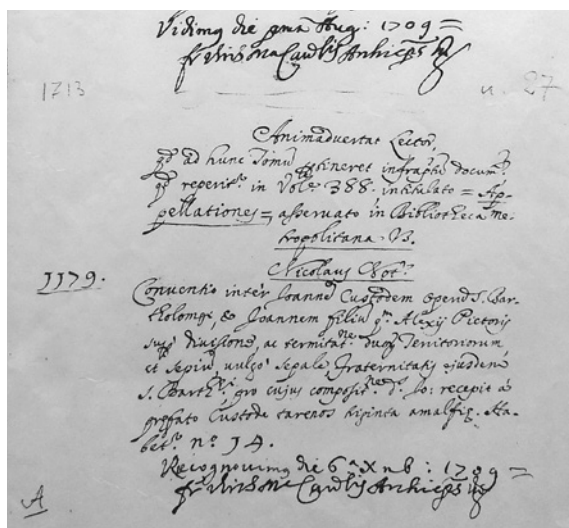 Vidimus die prima Aug: 1709 =
1713
n. 27
Animadvertat Lector,
qd ad hunc Tomū ptineret infraptū docum.
qd reperitr in Vole 388. intitulato = Ap-
pellationes =, asservato in Bibliotheca me-
tropolitana. B.
Nicolaus Not.s
1179.
Conventio inter Joannē Custodem operis S. Bar-
tholomęi, & Joannem filiū qm Alexij Pictoris
sup divisione, ac termitatne duoȝ Territoriorum
et sepiū, vulgo sepale, Fraternitatis ejusdem
S. Barthi, pro cujus compositne ds Jo: recepit a
prefato Custode tarenos triginta amalfię. Ha-
betr no 14.
Recognovimus die 6a Xmb: 1709 =
A